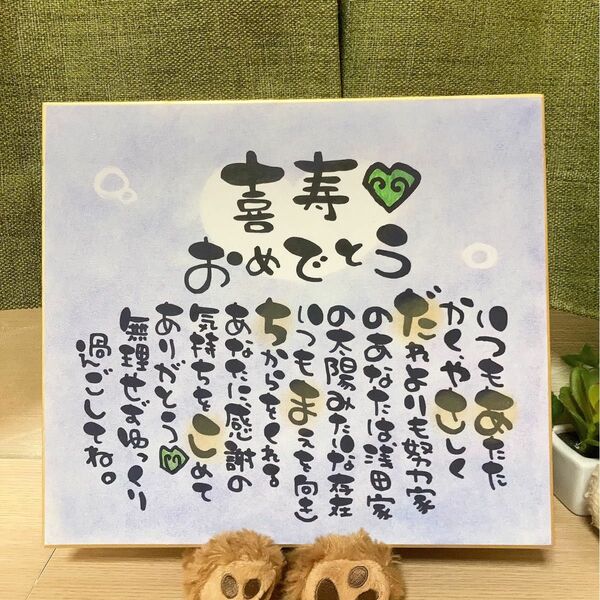 喜寿
おめでとう
いつもあたた
かく、やさしく
だれよりも努力家
のあなたは浅田家
の太陽みたいな存在
いつもまえを向き
ちからをくれる
あなたに感謝の
気持ちをこめて
ありがとう
無理せずゆっくり
過ごしてね。